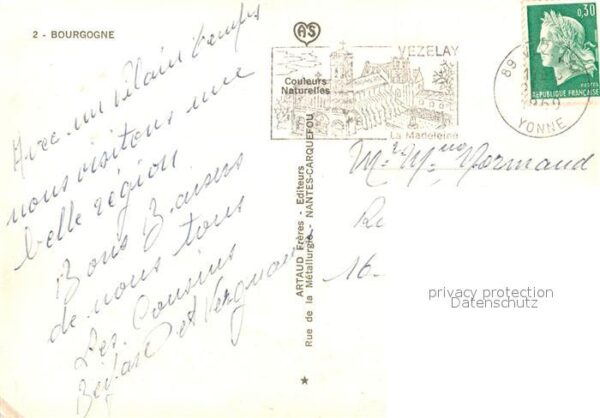 2 - BOURGOGNE
Avec un plain temps
nous visitons une
belle région
Bons Baisers
de nous tous
Les Cousins
et
AS
Couleurs
Naturelles
ARTAUD Frères - Editeurs
Rue de la Métallurgie - NANTES-CARQUEFOU
VEZELAY
La Madeleine
0,30
POSTES
REPUBLIQUE FRANÇAISE
89
YONNE
Mr Mme Normand
16-
privacy protection
Datenschutz